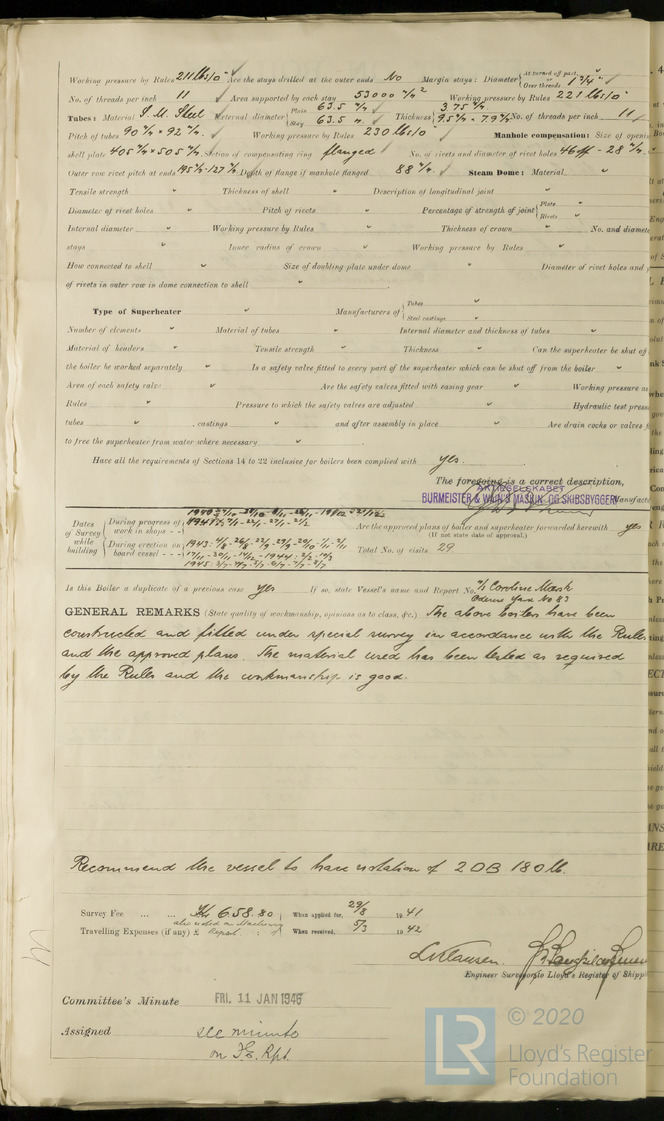 Working pressure by Rules 211 lbs/□" Are the stays drilled at the outer ends No Margin stays: Diameter { At turned off part, or Over threads 1 3/4"
No. of threads per inch 11 Area supported by each stay 53000 m/m² Working pressure by Rules 221 lbs/□"
Tubes: Material S.M. Steel External diameter { Plain 63.5 m/m Stay 63.5 " Thickness { 3.75 m/m 9.5 m/m - 7.9 m/m No. of threads per inch 11
Pitch of tubes 90 m/m × 92 m/m. Working pressure by Rules 230 lbs/□" Manhole compensation: Size of openi
shell plate 405 m/m × 505 m/m. Section of compensating ring flanged No. of rivets and diameter of rivet holes 46 off - 28 m/m.
Outer row rivet pitch at ends 195 m/m - 127 m/m. Depth of flange if manhole flanged 88 m/m. Steam Dome: Material "
Tensile strength " Thickness of shell " Description of longitudinal joint "
Diameter of rivet holes " Pitch of rivets " Percentage of strength of joint { Plate " Rivets "
Internal diameter " Working pressure by Rules " Thickness of crown " No. and diamete
stays " Inner radius of crown " Working pressure by Rules "
How connected to shell " Size of doubling plate under dome " Diameter of rivet holes and p
of rivets in outer row in dome connection to shell "
Type of Superheater " Manufacturers of { Tubes " Steel castings "
Number of elements " Material of tubes " Internal diameter and thickness of tubes "
Material of headers " Tensile strength " Thickness " Can the superheater be shut of
the boiler be worked separately " Is a safety valve fitted to every part of the superheater which can be shut off from the boiler "
Area of each safety valve " Are the safety valves fitted with easing gear " Working pressure as
Rules " Pressure to which the safety valves are adjusted " Hydraulic test press
tubes " , castings " and after assembly in place " Are drain cocks or valves f
to free the superheater from water where necessary "
Have all the requirements of Sections 14 to 22 inclusive for boilers been complied with yes.
The foregoing is a correct description,
AKTIESELSKABET
BURMEISTER & WAIN'S MASKIN- OG SKIBSBYGGERI Manufactu
Dates of Survey while building
During progress of work in shops - -
During erection on board vessel - - -
Are the approved plans of boiler and superheater forwarded herewith yes
(If not state date of approval.)
Total No. of visits 29
Is this Boiler a duplicate of a previous case yes If so, state Vessel's name and Report No. M/S Caroline Mærsk
Odense Yard No 83
GENERAL REMARKS (State quality of workmanship, opinions as to class, &c.) The above boilers have been
constructed and fitted under special survey in accordance with the Rules
and the approved plans. The material used has been tested as required
by the Rules and the workmanship is good.
Recommend the vessel to have notation of 2 DB 180 lb.
Survey Fee ... ... Kr 658.80 When applied for, 29/8 1941
also included on Machinery
Travelling Expenses (if any) £ Report. : : When received, 5/3 1942
Engineer Surveyor to Lloyd's Register of Shipp
Committee's Minute FRI. 11 JAN 1946
Assigned see minute
on F.E. Rpt.
LR © 2020
Lloyd's Register
Foundation